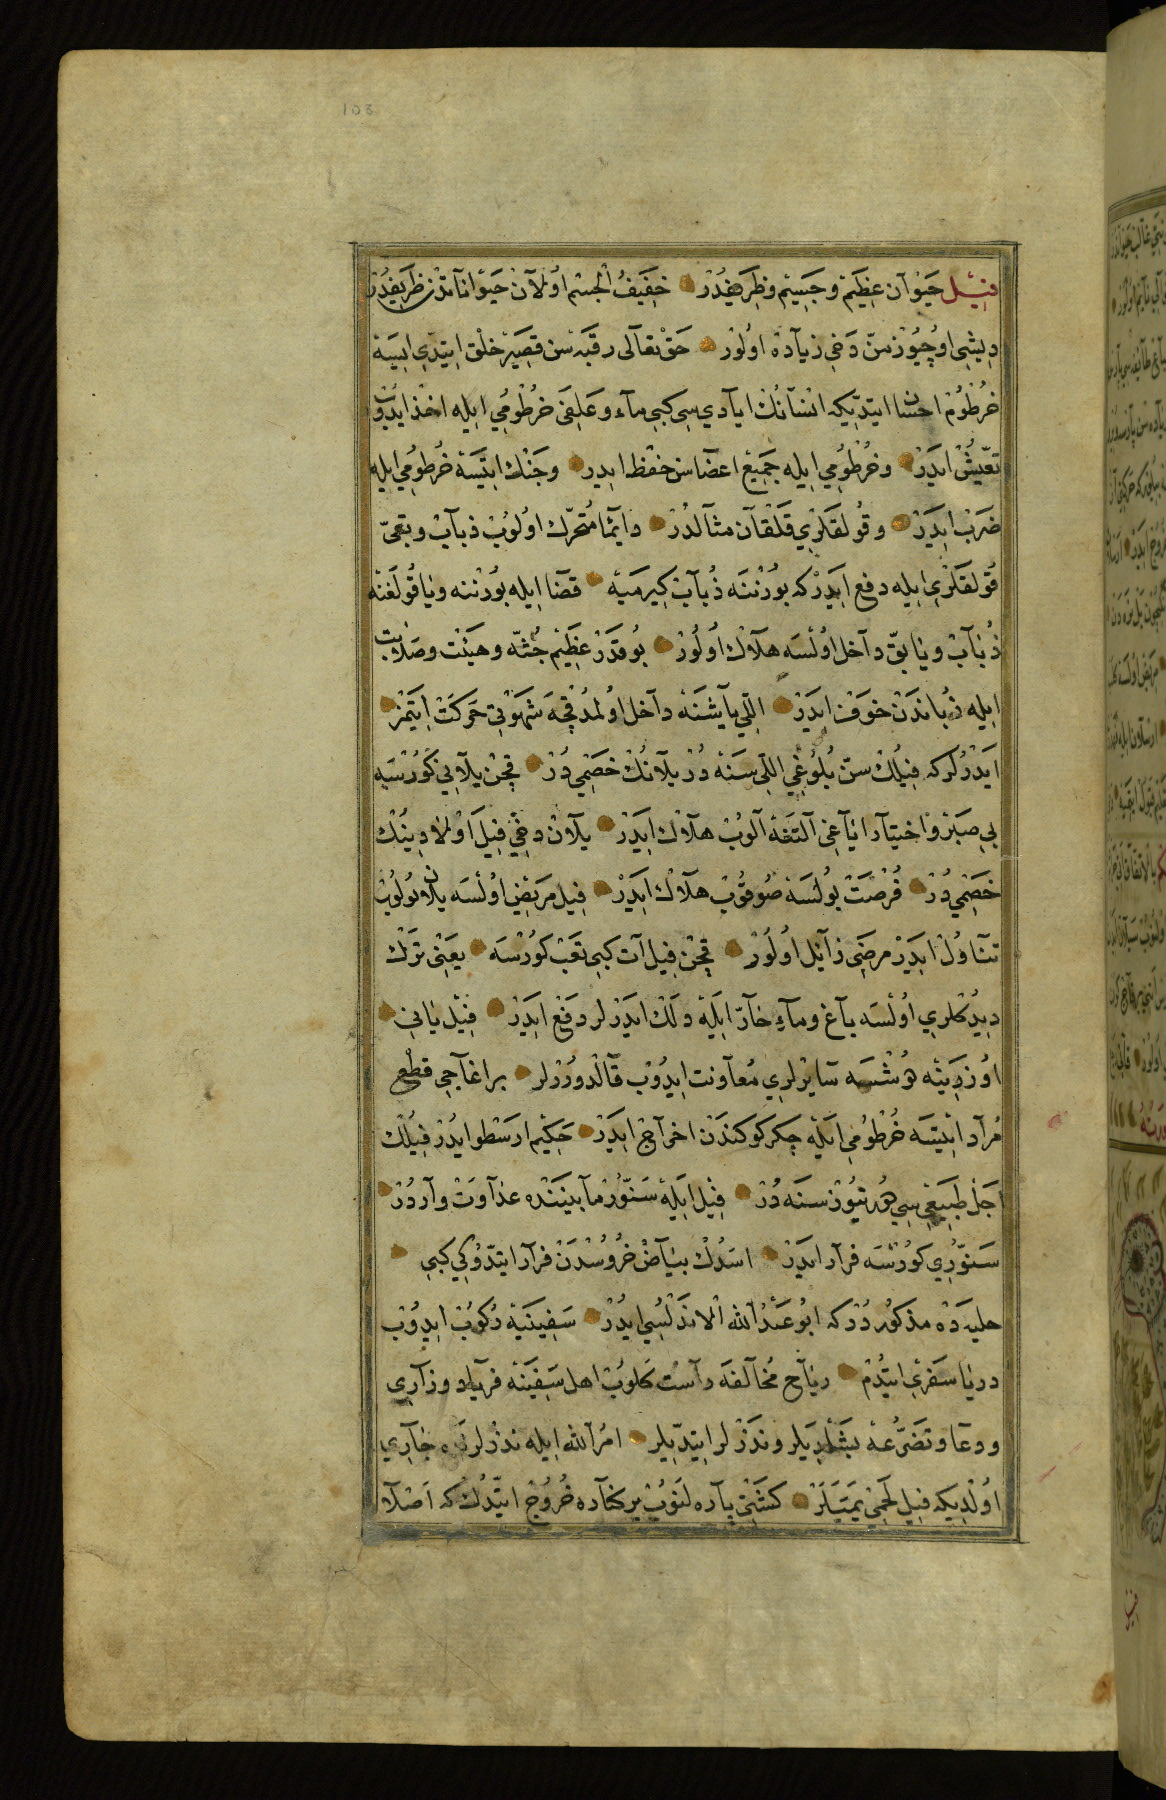 فيل حيوان عظيم و جسيم و ظريفدر خفيف الجسم اولان حيواناتدن ظريفدر
ديشى اوچيوز منّ دخى زياده اولور حق تعالى رقبه سن قصيره خلق ايتدى ايسه
خرطوم احسان ايتديكه انسانك ايادى سى كبى ماء و علفى خرطومى ايله اخذ ايدوب
تعيّش ايدر و خرطومى ايله جميع اعضاسن حفظ ايدر و جنك ايتسه خرطومى ايله
ضرب ايدر و قولقلرى قلقان مثالدر دايما متحرك اولوب ذباب و بقى
قولقلرى ايله دفع ايدر كه بورننه ذباب كيرميه قضا ايله بورننه ويا قولغنه
ذباب ويا بقّ داخل اولسه هلاك اولور بو قدر عظيم جثّه و هيئت و صلابت
ايله ذباندن خوف ايدر اللى ياشنه داخل اولمدقچه شهوتى حركت ايتمز
ايدرلر كه فيلك سنّ بلوغى اللى سنه در يلانك خصمى در قچن يلانى كورسه
بى صبر و اختيار اياغى التنه آلوب هلاك ايدر يلان دخى فيل اولادينك
خصمى در فرصت بولسه صوقوب هلاك ايدر فيل مريض اولسه يلان بولوب
تناول ايدر مرضى زايل اولور قچن فيل آت كبى تعب كورسه يعنى ترك
ديدكلرى اولسه ياغ و ماء حارّ ايله دلك ايدرلر دفع ايدر فيل يانى
اوزرينه دوشسه سايرلرى معاونت ايدوب قالدوررلر بر اغاجى قطع
مراد ايتسه خرطومى ايله چكر كوكندن اخراج ايدر حكيم ارسطو ايدر فيلك
اجل طبيعى سى دورتيوز سنه در فيل ايله سنّور مابيننده عداوت واردر
سنّورى كورسه فرار ايدر اسدك بياض خروسدن فرار ايتدوكى كبى
حليه ده مذكور در كه ابو عبد الله الاندلسى ايدر سفينيه ركوب ايدوب
دريا سفرى ايتدم رياح مخالفه راست كلوب اهل سفينه فرياد و زارى
و دعا و تضرّعه بشلديلر و نذرلر ايتديلر امر الله ايله نذرلرنده جارى
اولديكه فيل لحمى يميه لر كشتى پاره لنوب بر كناره خروج ايتدك كه اصلا